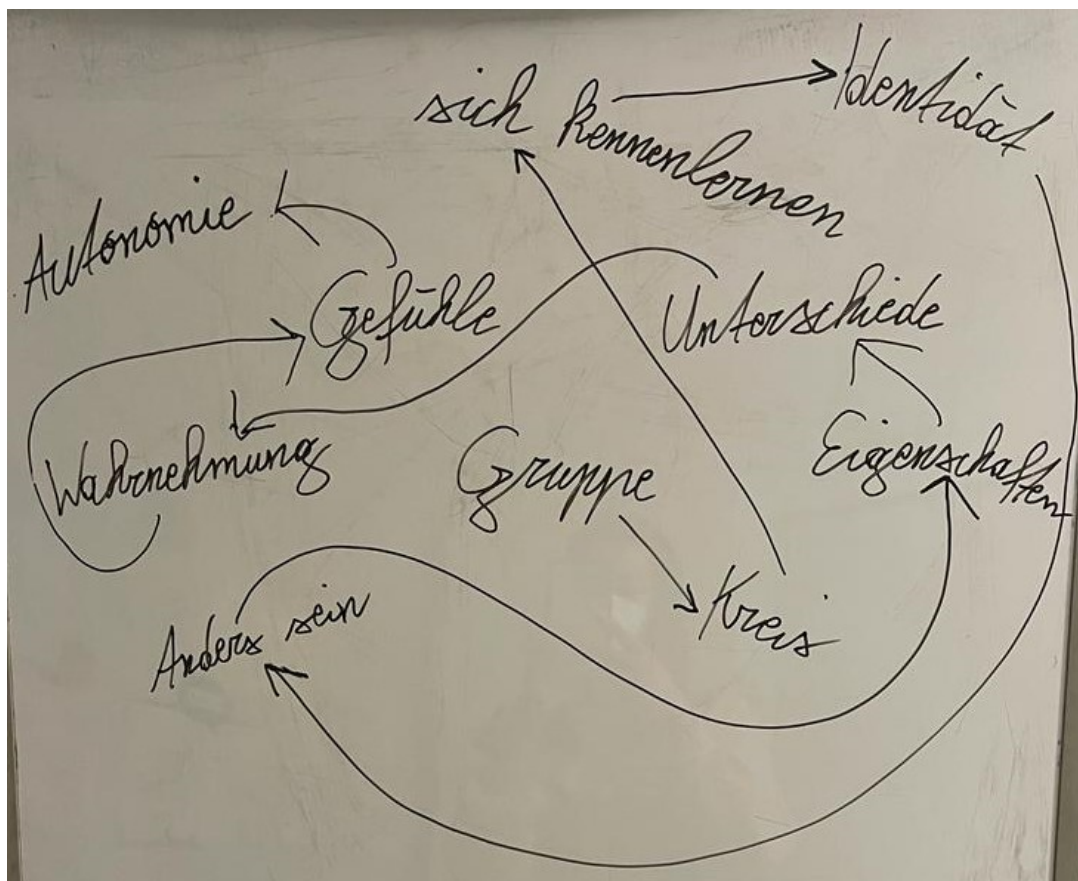 sich kennenlernen
Identidät
Autonomie
Gefühle
Unterschiede
Wahrnehmung
Gruppe
Eigenschaften
Anders sein
Kreis